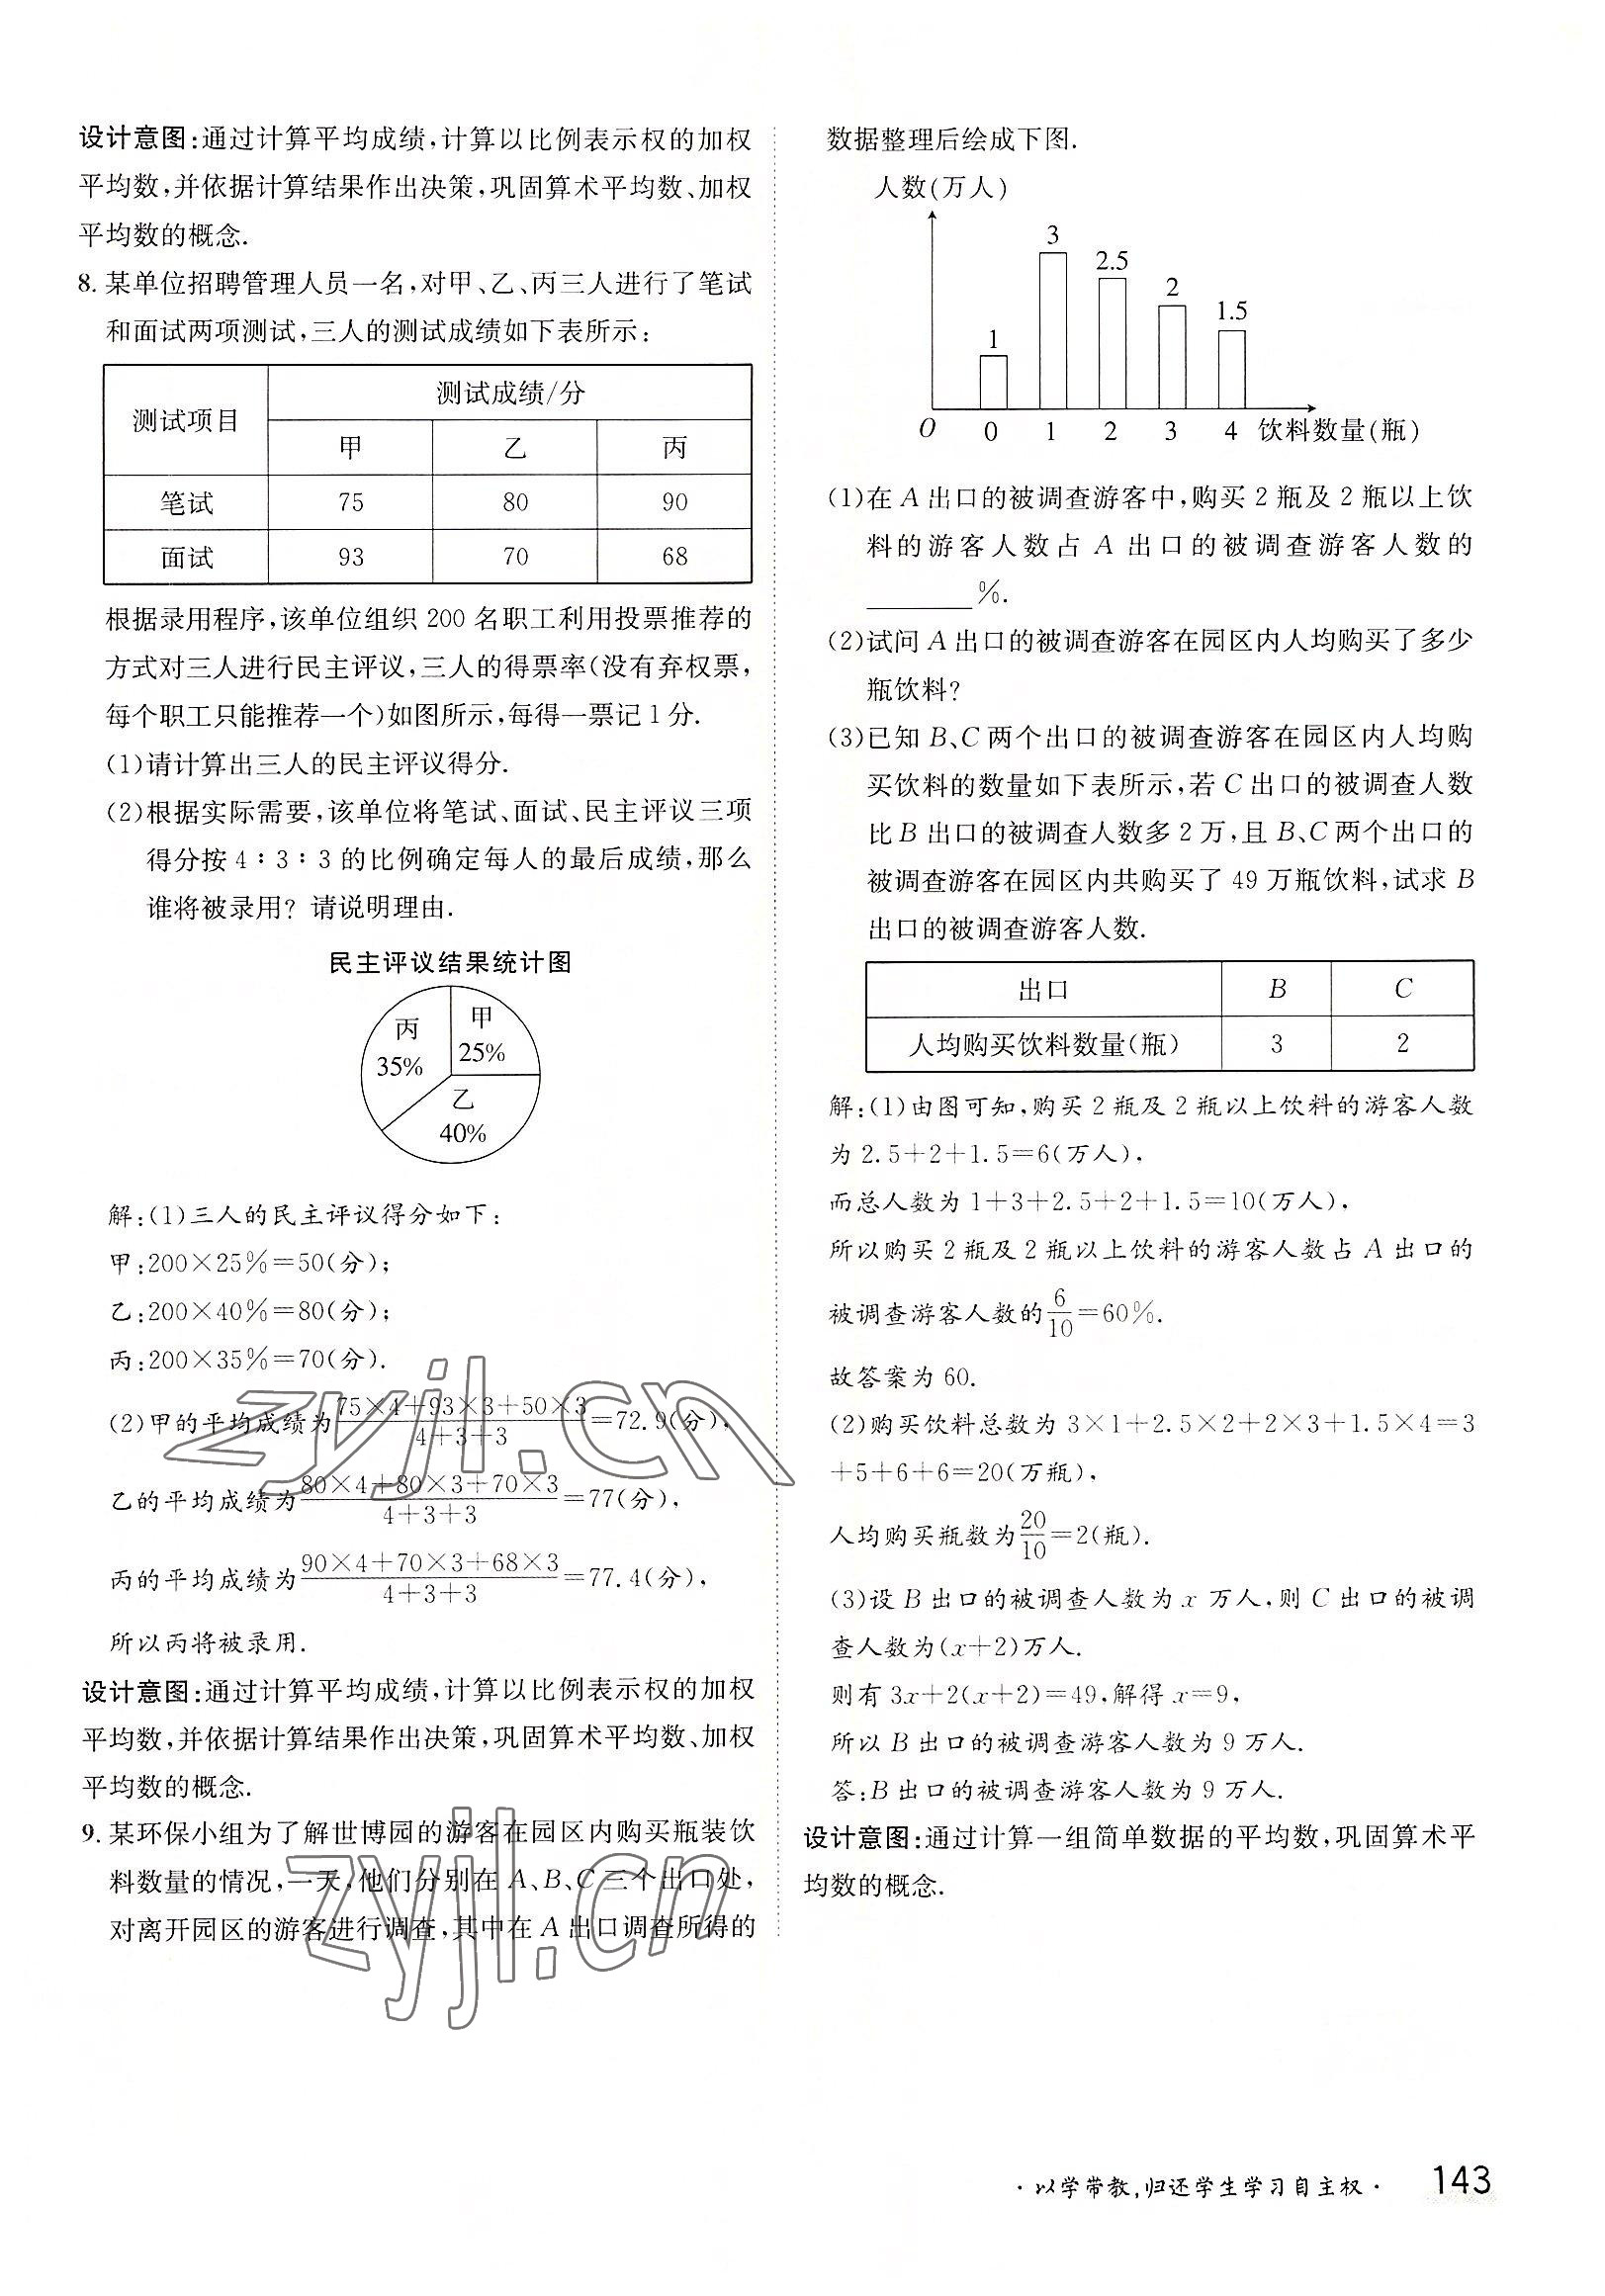 设计意图:通过计算平均成绩,计算以比例表示权的加权
平均数,并依据计算结果作出决策,巩固算术平均数、加权
平均数的概念.
8. 某单位招聘管理人员一名,对甲、乙、丙三人进行了笔试
和面试两项测试,三人的测试成绩如下表所示:
测试项目 测试成绩/分
甲 乙 丙
笔试 75 80 90
面试 93 70 68
根据录用程序,该单位组织 200 名职工利用投票推荐的
方式对三人进行民主评议,三人的得票率(没有弃权票,
每个职工只能推荐一个)如图所示,每得一票记 1 分.
(1)请计算出三人的民主评议得分.
(2)根据实际需要,该单位将笔试、面试、民主评议三项
得分按 4∶3∶3 的比例确定每人的最后成绩,那么
谁将被录用? 请说明理由.
民主评议结果统计图
丙 35%
甲 25%
乙 40%
解:(1)三人的民主评议得分如下:
甲:200×25%=50(分);
乙:200×40%=80(分);
丙:200×35%=70(分).
(2)甲的平均成绩为 (75×4+93×3+50×3)/(4+3+3)=72.9(分),
乙的平均成绩为 (80×4+80×3+70×3)/(4+3+3)=77(分),
丙的平均成绩为 (90×4+70×3+68×3)/(4+3+3)=77.4(分),
所以丙将被录用.
设计意图:通过计算平均成绩,计算以比例表示权的加权
平均数,并依据计算结果作出决策,巩固算术平均数、加权
平均数的概念.
9. 某环保小组为了解世博园的游客在园区内购买瓶装饮
料数量的情况,一天,他们分别在 A、B、C 三个出口处,
对离开园区的游客进行调查,其中在 A 出口调查所得的
zyjl.cn
zyjl.cn
数据整理后绘成下图.
人数(万人)
3
2.5
2
1.5
1
O 0 1 2 3 4 饮料数量(瓶)
(1)在 A 出口的被调查游客中,购买 2 瓶及 2 瓶以上饮
料的游客人数占 A 出口的被调查游客人数的
________%.
(2)试问 A 出口的被调查游客在园区内人均购买了多少
瓶饮料?
(3)已知 B、C 两个出口的被调查游客在园区内人均购
买饮料的数量如下表所示,若 C 出口的被调查人数
比 B 出口的被调查人数多 2 万,且 B、C 两个出口的
被调查游客在园区内共购买了 49 万瓶饮料,试求 B
出口的被调查游客人数.
出口 B C
人均购买饮料数量(瓶) 3 2
解:(1)由图可知,购买 2 瓶及 2 瓶以上饮料的游客人数
为 2.5+2+1.5=6(万人),
而总人数为 1+3+2.5+2+1.5=10(万人),
所以购买 2 瓶及 2 瓶以上饮料的游客人数占 A 出口的
被调查游客人数的 6/10=60%.
故答案为 60.
(2)购买饮料总数为 3×1+2.5×2+2×3+1.5×4=3
+5+6+6=20(万瓶),
人均购买瓶数为 20/10=2(瓶).
(3)设 B 出口的被调查人数为 x 万人,则 C 出口的被调
查人数为(x+2)万人.
则有 3x+2(x+2)=49,解得 x=9,
所以 B 出口的被调查游客人数为 9 万人.
答:B 出口的被调查游客人数为 9 万人.
设计意图:通过计算一组简单数据的平均数,巩固算术平
均数的概念.
·以学带教,归还学生学习自主权· 143